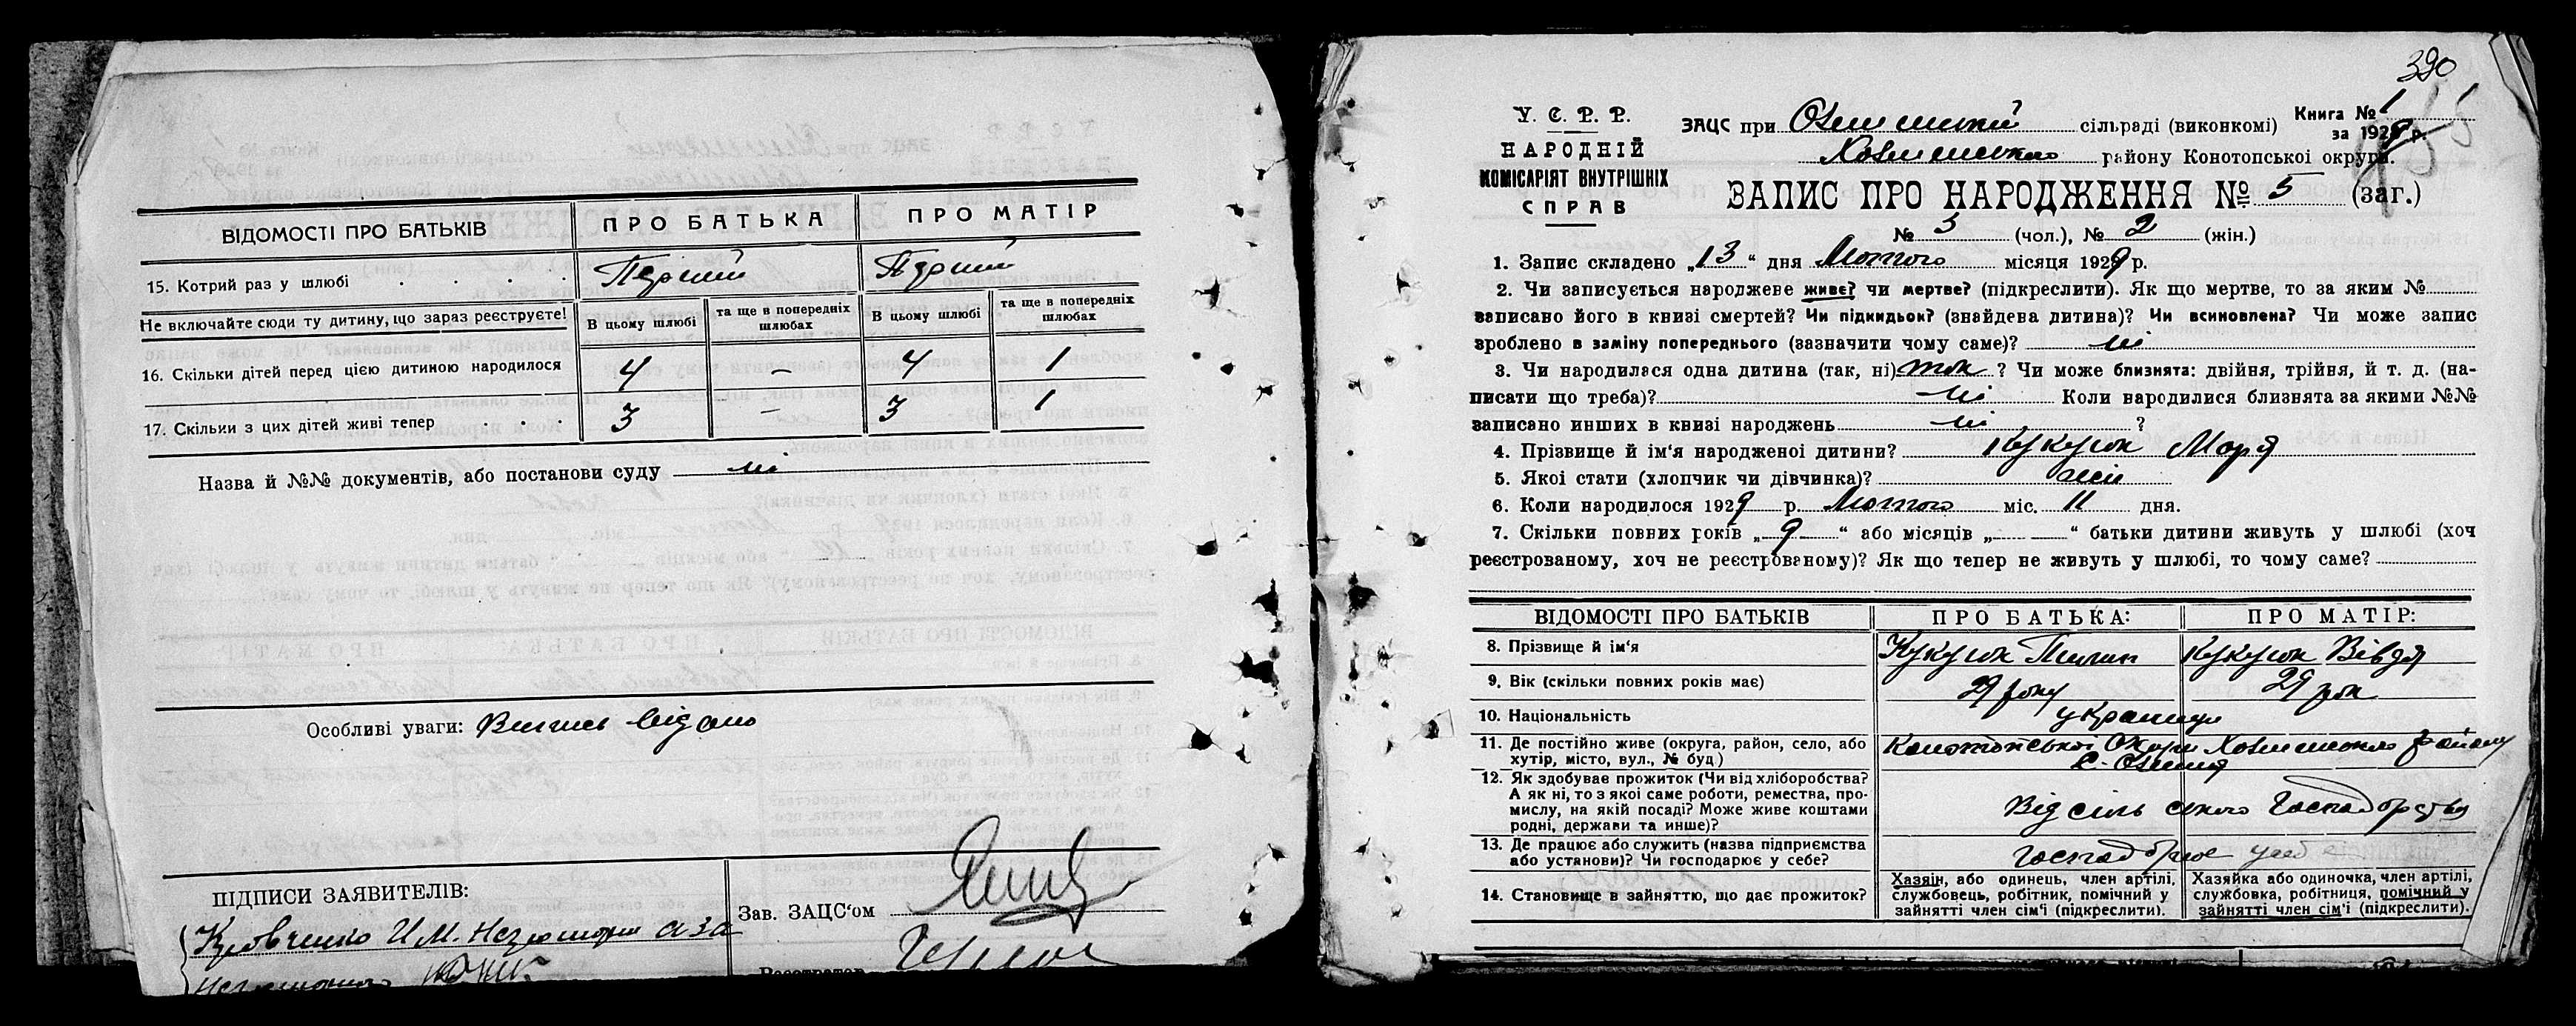 ВІДОМОСТІ ПРО БАТЬКІВ ПРО БАТЬКА ПРО МАТІР
15. Котрий раз у шлюбі . . . . Перший Перший
Не включайте сюди ту дитину, що зараз реєструєте! В цьому шлюбі та ще в попередніх шлюбах В цьому шлюбі та ще в попередніх шлюбах
16. Скільки дітей перед цією дитиною народилося 4 – 4 1
17. Скільки з цих дітей живі тепер . . . 3 – 3 1
Назва й №№ документів, або постанови суду ні
Особливі уваги: Випись видано
ПІДПИСИ ЗАЯВИТЕЛІВ:
Зав. ЗАЦС‘ом
Кравченко И М. аза
Реєстратор
390
У. С. Р. Р.
НАРОДНІЙ
КОМІСАРІЯТ ВНУТРІШНІХ
СПРАВ
ЗАЦС при сільраді (виконкомі)
Книга № 1
за 1929 р.
району Конотопської округи.
ЗАПИС ПРО НАРОДЖЕННЯ № 5 (заг.)
№ 3 (чол.), № 2 (жін.)
1. Запис складено „13“ дня Лютого місяця 1929 р.
2. Чи записується народжене живе? чи мертве? (підкреслити). Як що мертве, то за яким №
записано його в книзі смертей? Чи підкидьок? (знайдена дитина)? Чи всиновлена? Чи може запис
зроблено в заміну попереднього (зазначити чому саме)? ні
3. Чи народилася одна дитина (так, ні) так ? Чи може близнята: двійня, трійня, й т. д. (на-
писати що треба)? ні Коли народилися близнята за якими №№
записано инших в книзі народжень ні ?
4. Прізвище й ім‘я народженої дитини? Кукуюк Марія
5. Якої стати (хлопчик чи дівчинка)? жін
6. Коли народилося 1929 р. Лютого міс. 11 дня.
7. Скільки повних років „9“ або місяців „—“ батьки дитини живуть у шлюбі (хоч
реєстрованому, хоч не реєстрованому)? Як що тепер не живуть у шлюбі, то чому саме?
ВІДОМОСТІ ПРО БАТЬКІВ ПРО БАТЬКА: ПРО МАТІР:
8. Прізвище й ім‘я Кукуюк Пилип Кукуюк Вівдя
9. Вік (скільки повних років має) 29 року 29 рок
10. Національність українци
11. Де постійно живе (округа, район, село, або
хутір, місто, вул., № буд.)
Конотопської Округи району
12. Як здобуває прожиток (Чи від хліборобства?
А як ні, то з якої саме роботи, ремества, про-
мислу, на якій посаді? Може живе коштами
родні, держави та инше)?
Від сільського Господарства
13. Де працює або служить (назва підприємства
або установи)? Чи господарює у себе?
Господарює у себе
14. Становище в зайняттю, що дає прожиток?
Хазяін, або одинець, член артілі,
службовець, робітник, помічний у
зайнятті член сім‘ї (підкреслити).
Хазяйка або одиночка, член артілі,
службовка, робітниця, помічний у
зайнятті член сім‘ї (підкреслити).